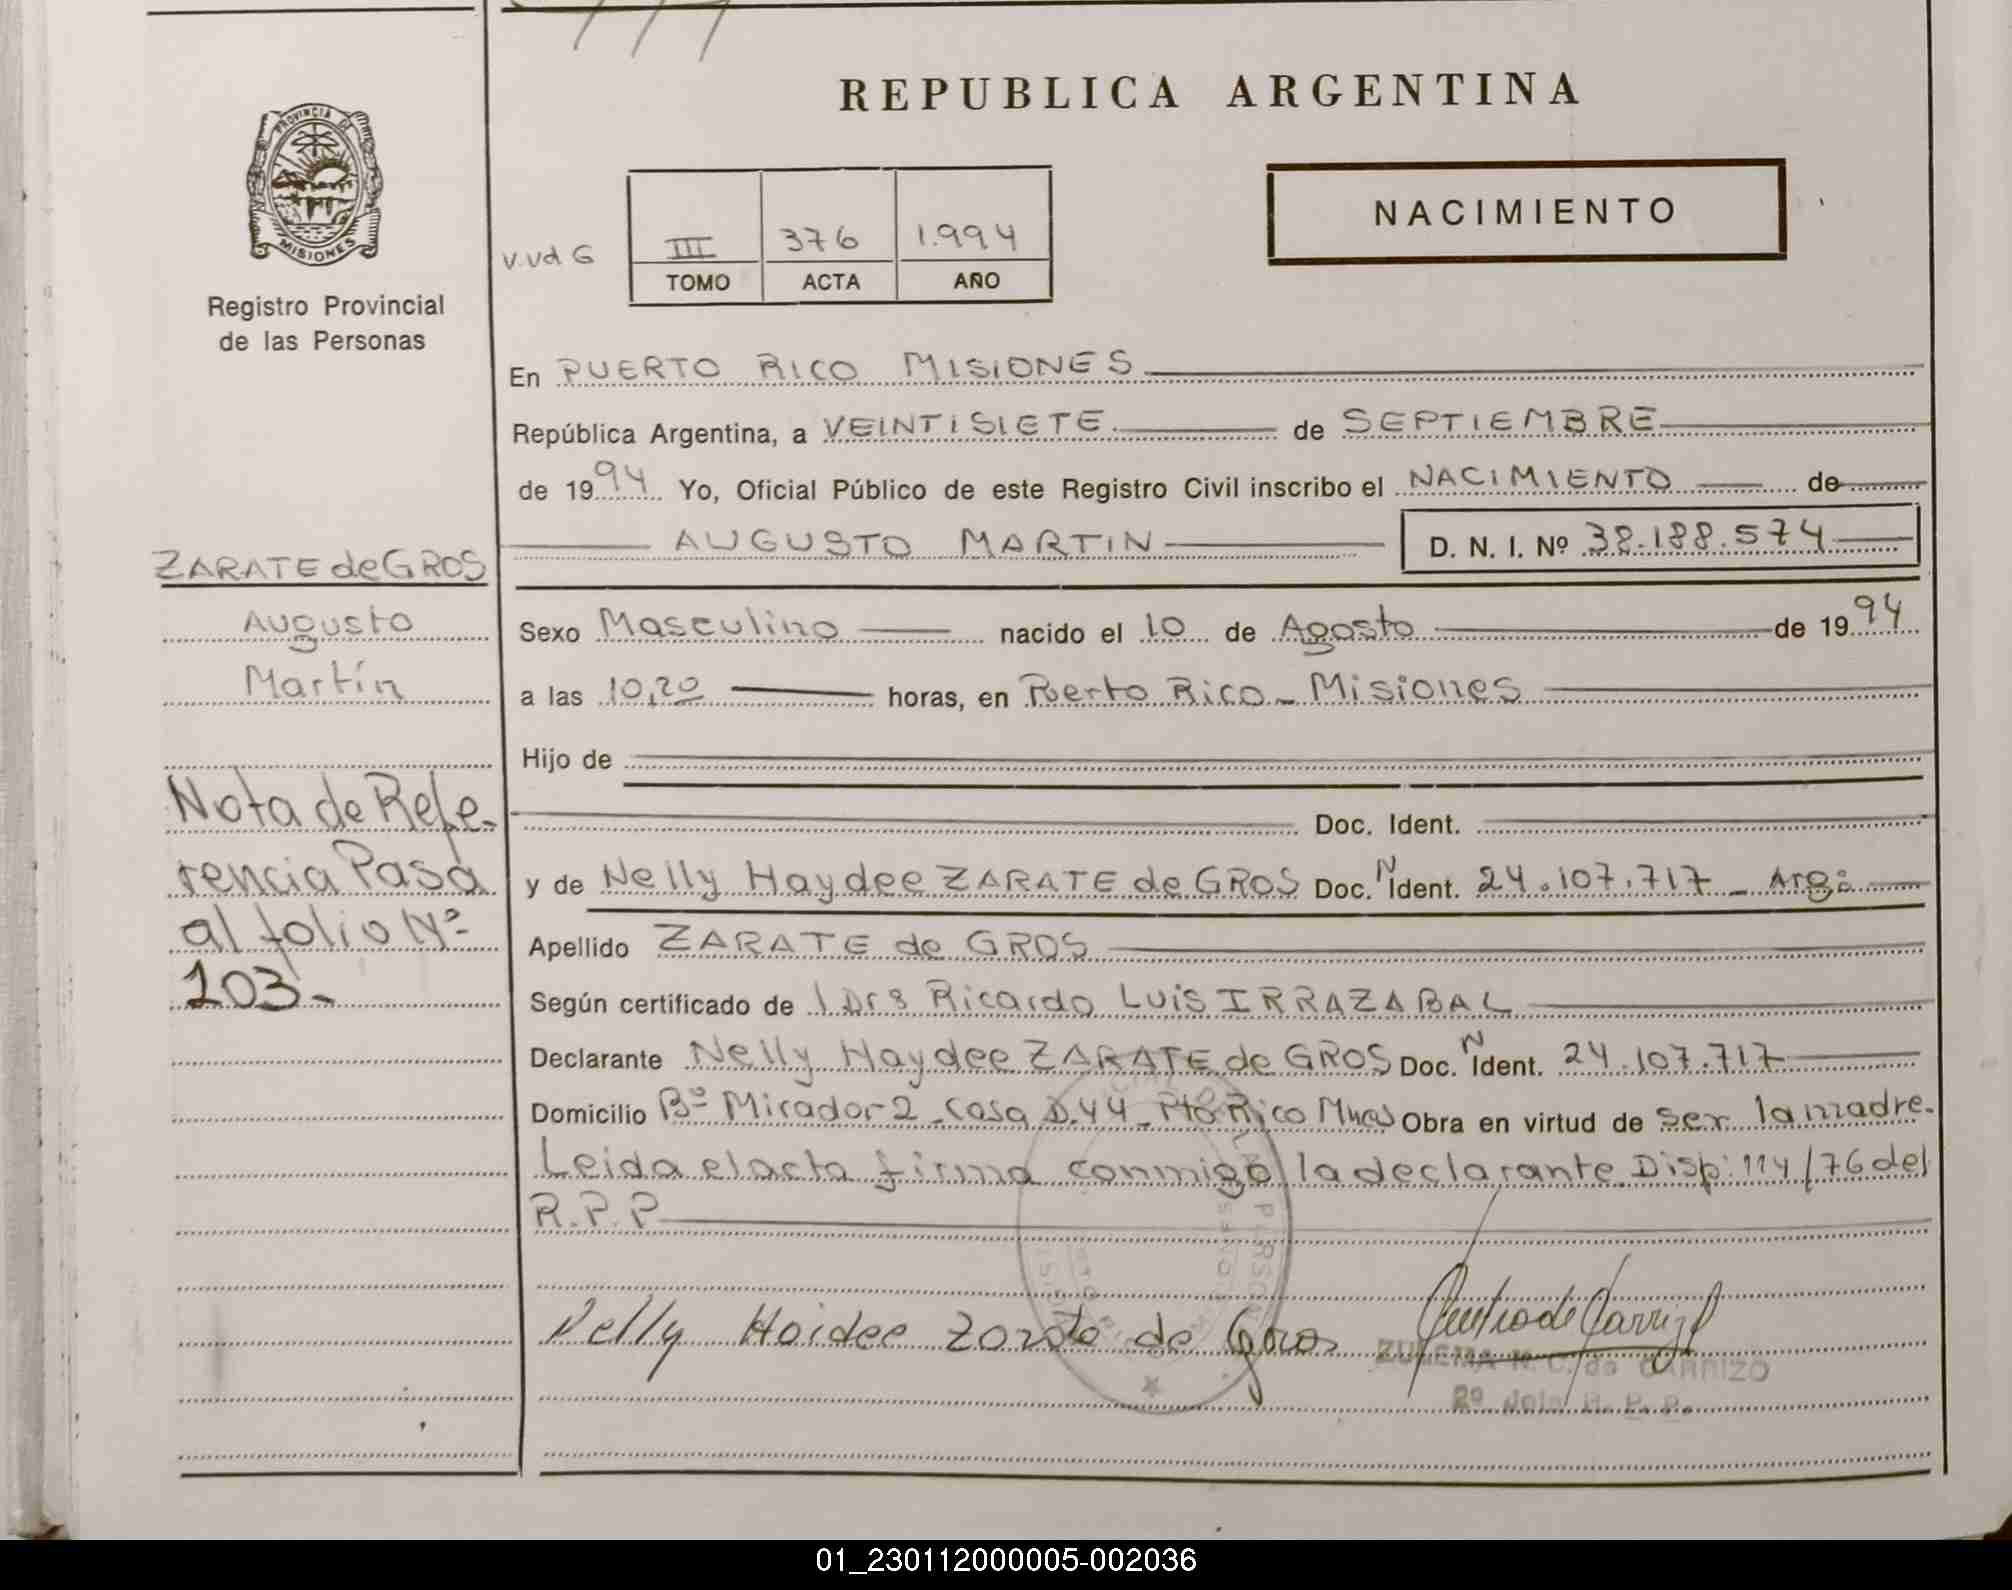 REPUBLICA ARGENTINA
PROVINCIA DE
MISIONES
Registro Provincial
de las Personas
NACIMIENTO
V.Vd G
III 376 1.994
TOMO ACTA AÑO
En PUERTO RICO MISIONES
República Argentina, a VEINTISIETE de SEPTIEMBRE
de 1994 Yo, Oficial Público de este Registro Civil inscribo el NACIMIENTO de
AUGUSTO MARTIN D. N. I. Nº 38.188.574
ZARATE de GROS
Augusto
Martín
Nota de Refe-
rencia Pasa
al folio Nº
103.-
Sexo Masculino nacido el 10 de Agosto de 1994
a las 10,20 horas, en Puerto Rico - Misiones
Hijo de
Doc. Ident.
y de Nelly Haydee ZARATE de GROS Doc. N Ident. 24.107.717 - Arg:
Apellido ZARATE de GROS
Según certificado de Ricardo Luis IRRAZABAL
Declarante Nelly Haydee ZARATE de GROS Doc. N Ident. 24.107.717
Domicilio Bº Mirador 2 - Casa D.44 - Pto Rico Mnes Obra en virtud de ser la madre.
Leida el acta firma conmigo la declarante. Disp: 114/76 del
R.P.P
Nelly Haidee Zarate de Gros
ZULEMA N. C. de CARRIZO
R. P. P.
01_230112000005-002036